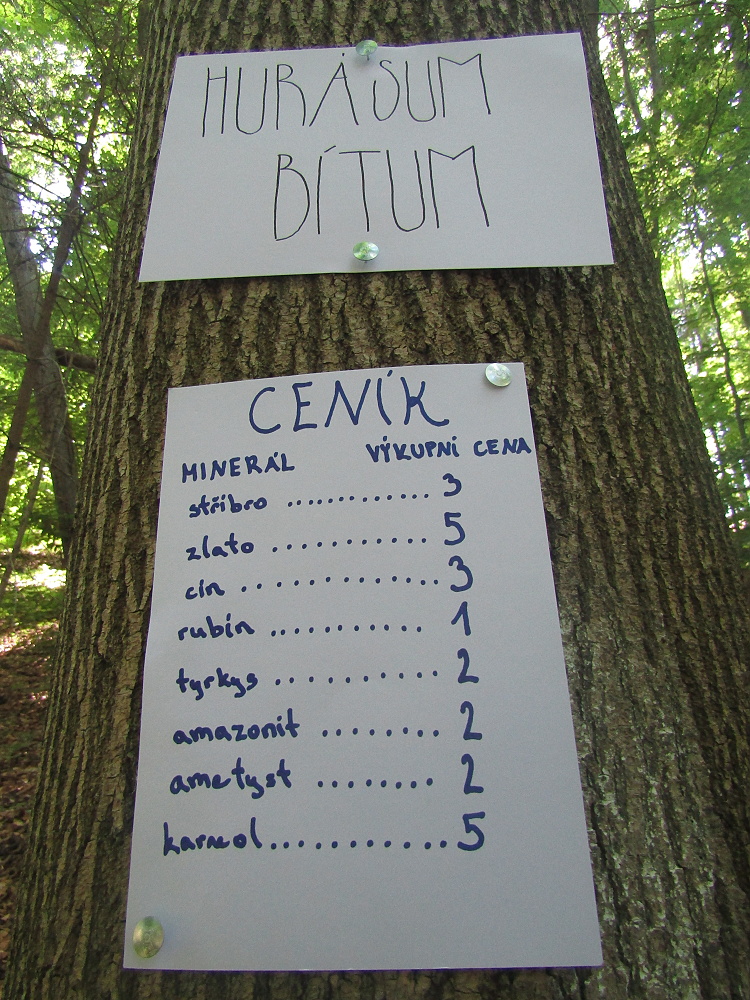 HURÁSUM
BÍTUM
CENÍK
MINERÁL VÝKUPNÍ CENA
stříbro ............. 3
zlato ........... 5
cín ............. 3
rubín ........... 1
tyrkys ........... 2
amazonit ........ 2
ametyst ........ 2
karneol............ 5